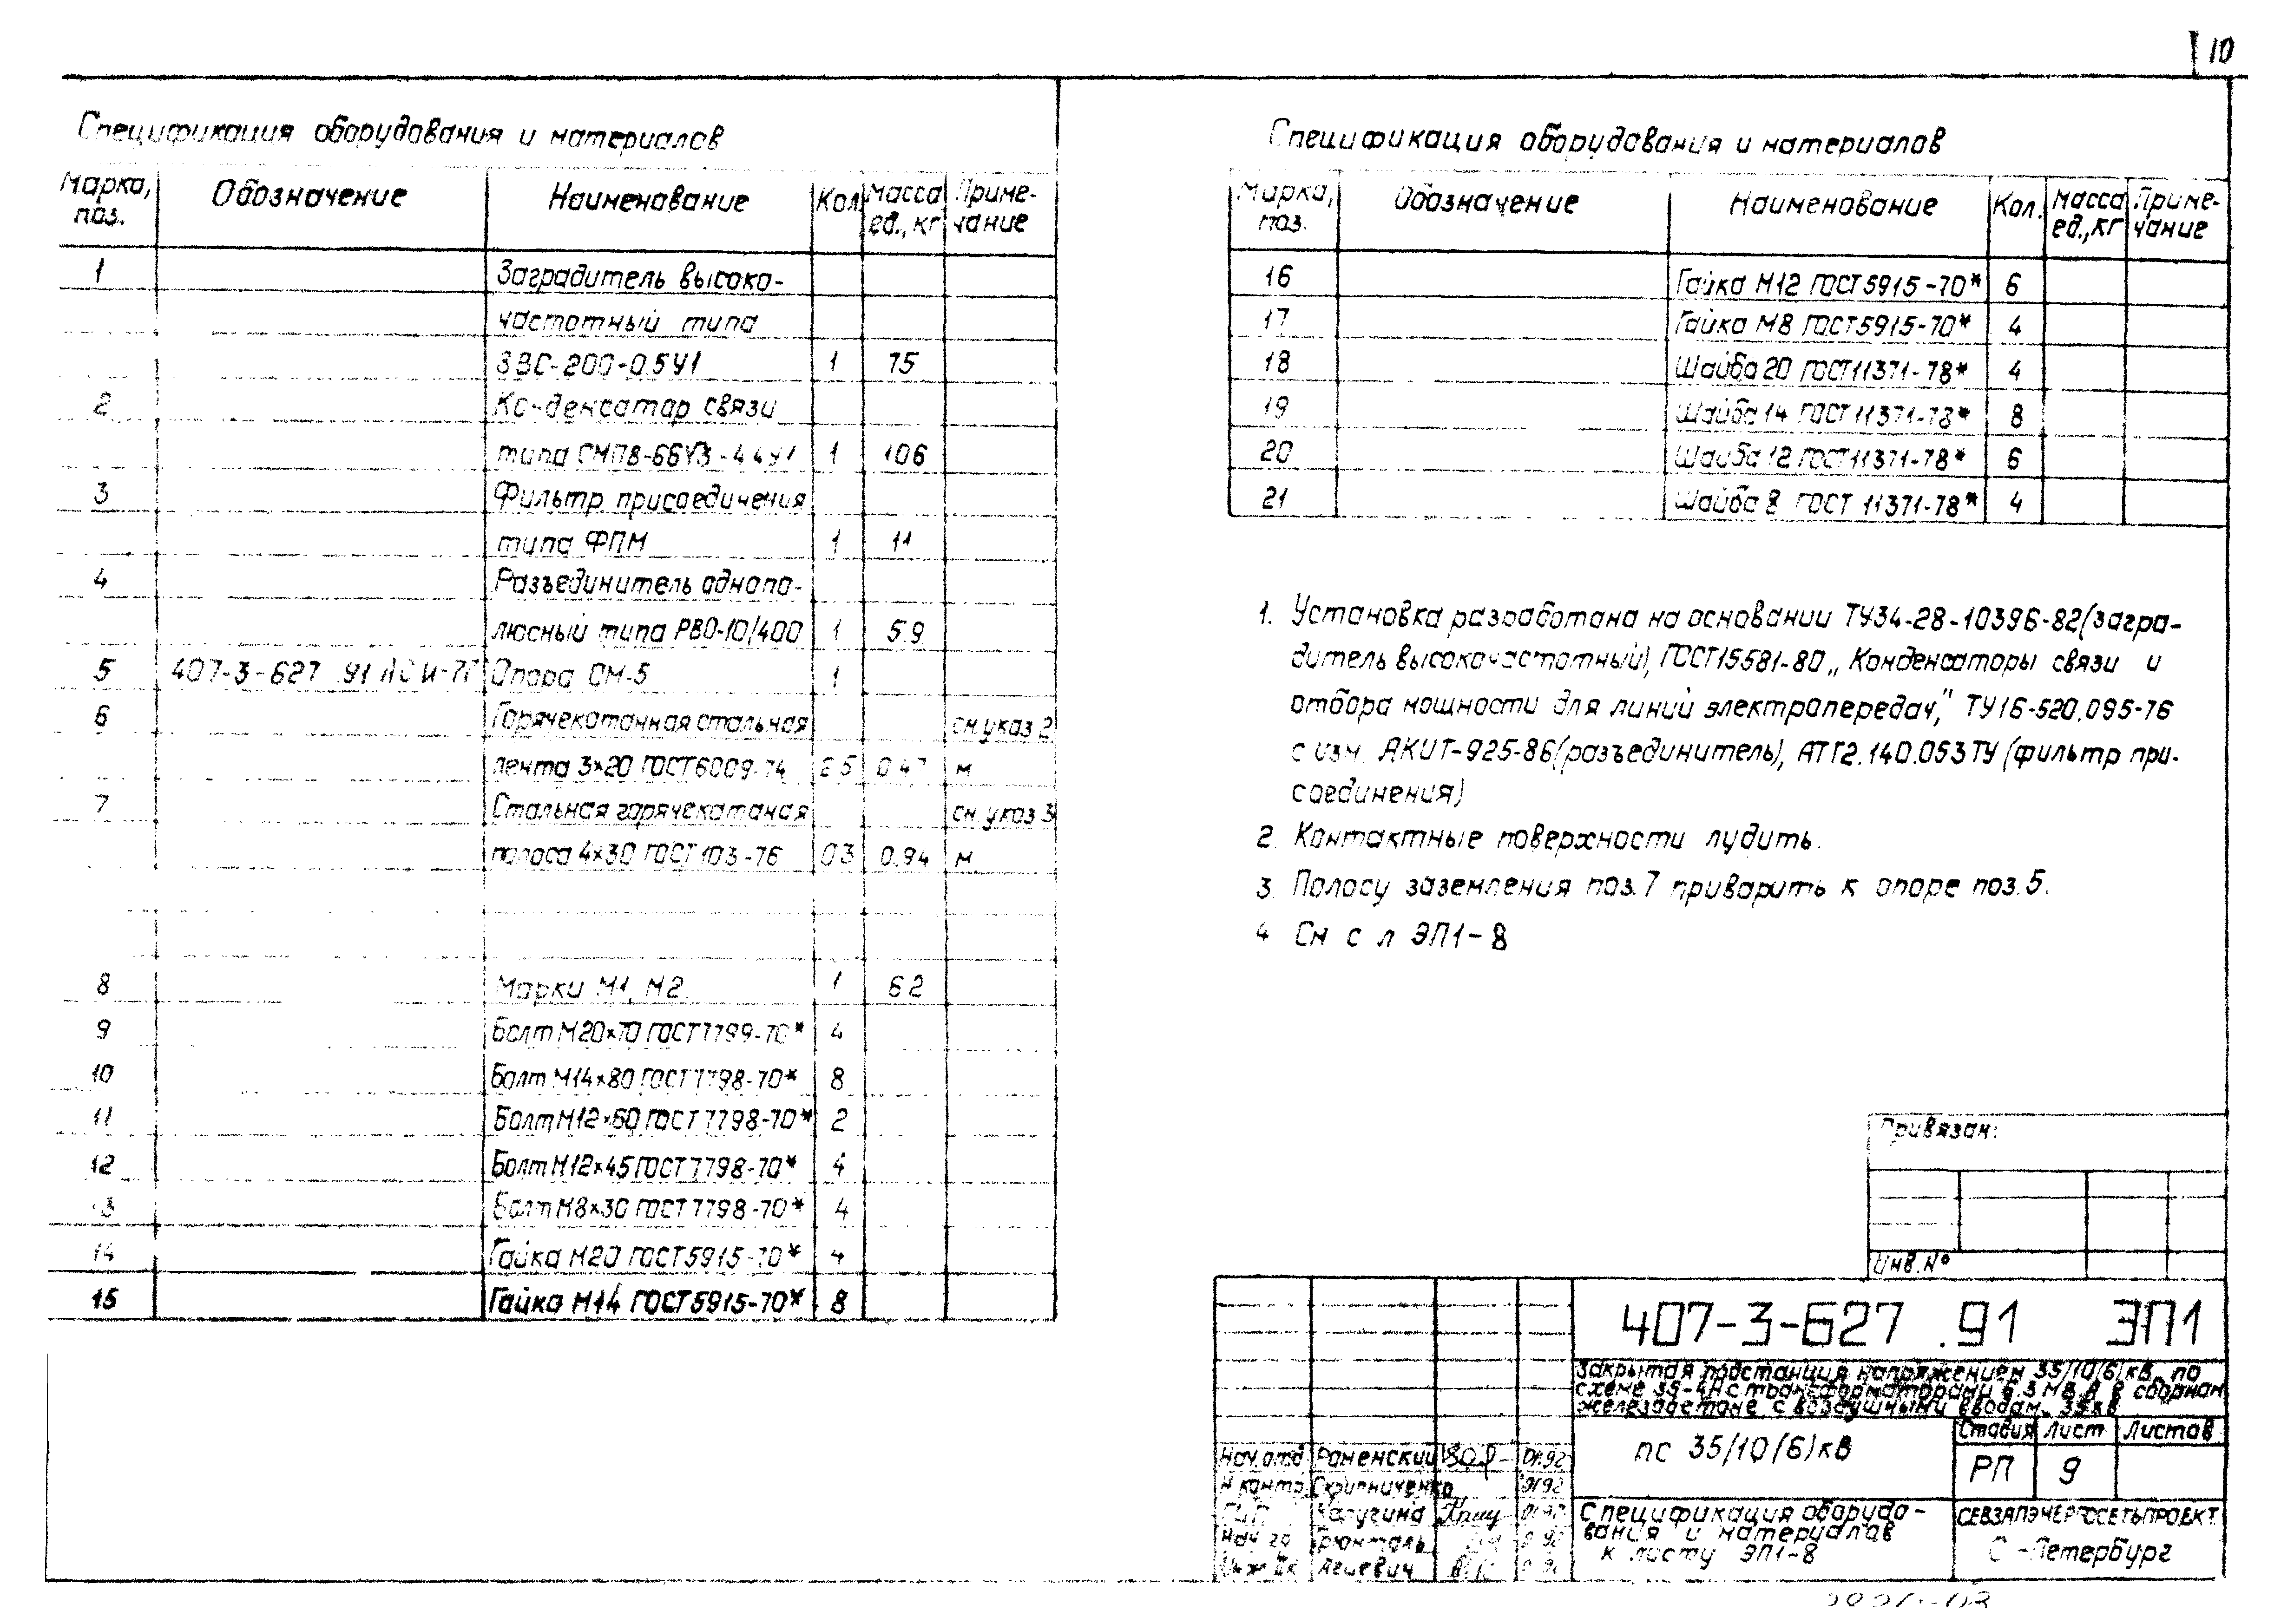 10
Спецификация оборудования и материалов
Марка, поз. Обозначение Наименование Кол. Масса ед., кг Примечание
1 Заградитель высоко-
частотный типа
ЗВС-200-0.5У1 1 75
2 Конденсатор связи
типа СМП8-66√3-4.4У1 1 106
3 Фильтр присоединения
типа ФПМ 1 11
4 Разъединитель однопо-
люсный типа РВО-10/400 1 5.9
5 407-3-627 .91 Опора ОМ-5 1
6 Горячекатанная стальная см. указ 2
лента 3×20 ГОСТ 6009-74 2.5 0.47 м
7 Стальная горячекатаная см. указ 3
полоса 4×30 ГОСТ 103-76 0.3 0.94 м
8 Марки М1, М2 1 6.2
9 Болт М20×70 ГОСТ 7799-70* 4
10 Болт М14×80 ГОСТ 7798-70* 8
11 Болт М12×60 ГОСТ 7798-70* 2
12 Болт М12×45 ГОСТ 7798-70* 4
13 Болт М8×30 ГОСТ 7798-70* 4
14 Гайка М20 ГОСТ 5915-70* 4
15 Гайка М14 ГОСТ 5915-70* 8
Спецификация оборудования и материалов
Марка, поз. Обозначение Наименование Кол. Масса ед., кг Примечание
16 Гайка М12 ГОСТ 5915-70* 6
17 Гайка М8 ГОСТ 5915-70* 4
18 Шайба 20 ГОСТ 11371-78* 4
19 Шайба 14 ГОСТ 11371-78* 8
20 Шайба 12 ГОСТ 11371-78* 6
21 Шайба 8 ГОСТ 11371-78* 4
1. Установка разработана на основании ТУ34-28-10396-82 (загра-
дитель высокочастотный), ГОСТ 15581-80 „Конденсаторы связи и
отбора мощности для линий электропередач," ТУ16-520.095-76
с изм. АКИТ-925-86 (разъединитель), АТГ2.140.053 ТУ (фильтр при-
соединения)
2. Контактные поверхности лудить.
3. Полосу заземления поз. 7 приварить к опоре поз. 5.
4 См с л ЭП1-8
Привязан:
Инв. №
407-3-627 .91 ЭП1
Закрытая подстанция напряжением 35/10(6)кВ по
схеме 35-4Н с трансформаторами 6.3 МВ А в сборном
железобетоне с воздушными вводам. 35кВ
Нач. отд Роменский 01.92
Н контр Скрипниченко 01.92
ГИП Калугина 01.92
Нач гр Грюнталь
пс 35/10(6)кВ
Стадия Лист Листов
РП 9
Спецификация оборудо-
вания и материалов
к листу ЭП1-8
СЕВЗАПЭНЕРГОСЕТЬПРОЕКТ
С-Петербург